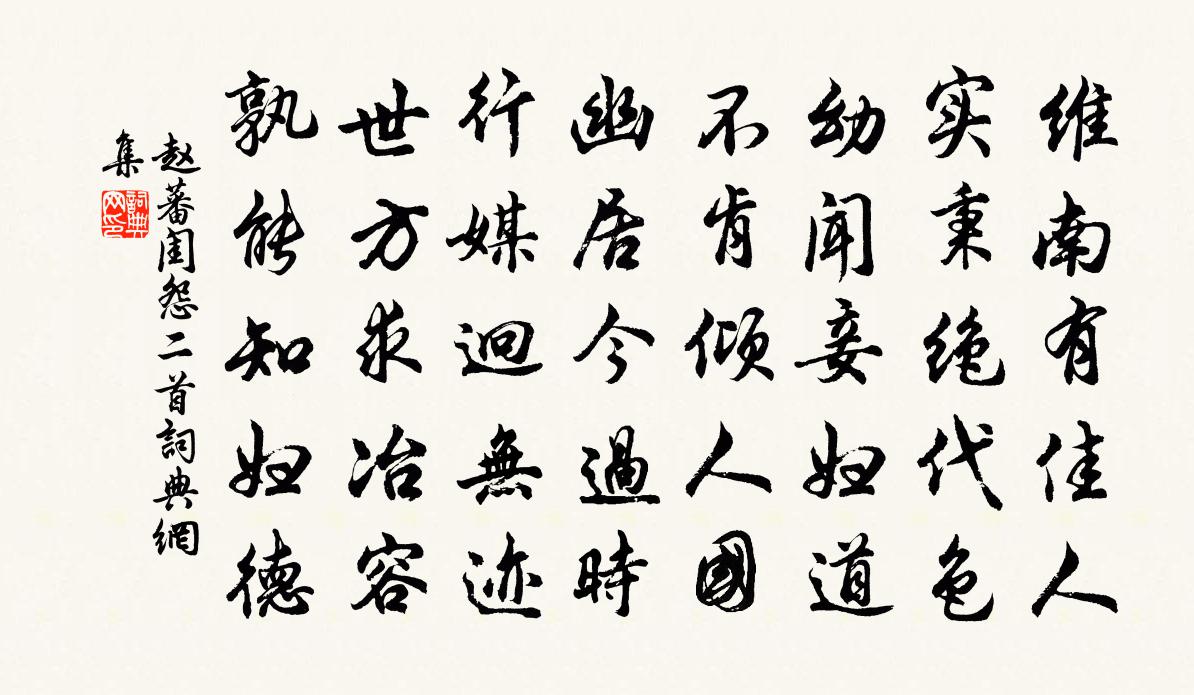 维南有佳人
实秉绝代色
幼闻妾妇道
不肯倾人國
幽居今過時
行媒迥無迹
世方求冶容
孰能知妇德
赵蕃闺怨二首詞典網
集
詞典网印